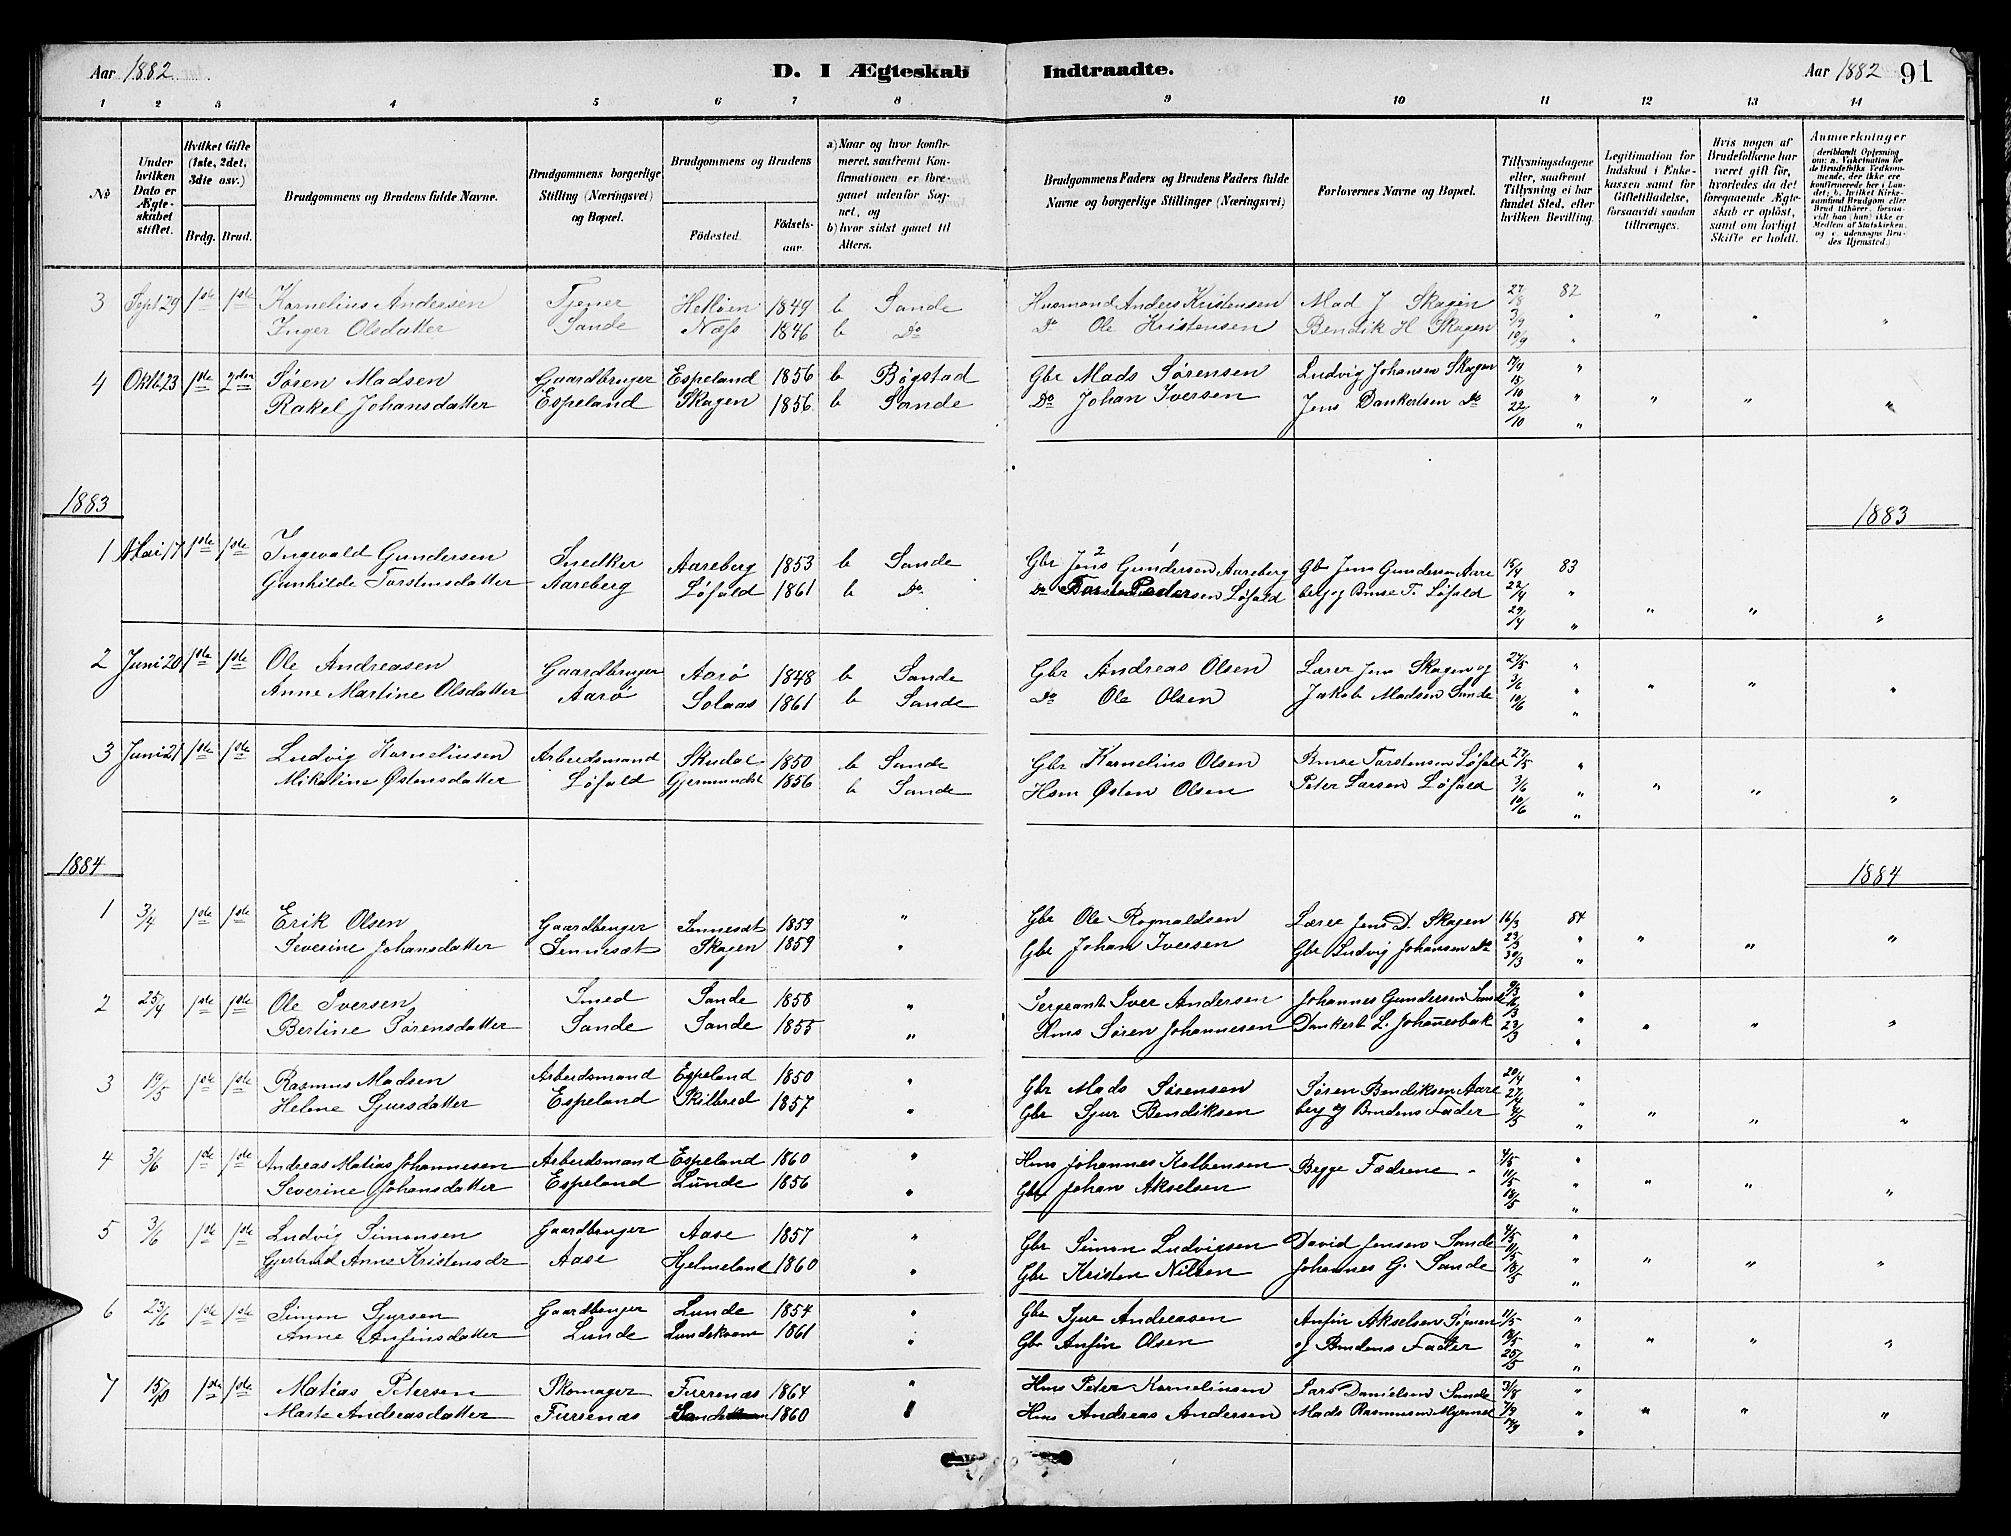 Aar 1882
D. I Ægteskab Indtraadte.
Aar 1882 91
1 2 3 4 5 6 7 8 9 10 11 12 13 14
No
Under hvilken Dato er Ægteskabet stiftet.
Hvilket Gifte (1ste, 2det, 3die osv.)
Brdg. Brud.
Brudgommens og Brudens fulde Navne.
Brudgommens borgerlige Stilling (Næringsvei) og Bopæl.
Brudgommens og Brudens
Fødested. Fødsels-aar.
a) Naar og hvor konfirmeret, saafremt Konfirmationen er foregaaet udenfor Sognet, og
b) hvor sidst gaaet til Alters.
Brudgommens Faders og Brudens Faders fulde Navne og borgerlige Stillinger (Næringsvei)
Forlovernes Navne og Bopæl.
Tillysningsdagene eller, saafremt Tillysning ei har fundet Sted, efter hvilken Bevilling.
Legitimation for Indskud i Enkekassen samt for Giftetilladelse, forsaavidt saadan tiltrænges.
Hvis nogen af Brudefolkene har været gift før, hvorledes da det foregaaende Ægteskab er opløst, samt om lovligt Skifte er holdt.
Anmærkninger (deriblandt Oplysning om: a. Vakcination for de Brudefolks Vedkommende, der ikke ere konfirmerede her i Landet; b. hvilket Kirkesamfund Brudgom eller Brud tilhører, forsaavidt han (hun) ikke er Medlem af Statskirken, og c. udensogns Brudes Hjemsted.)
3 Sept 29 1ste 1ste Kornelius Andersen Tjener 1849 b Sande Husmand Anders Kristensen Mad J Skagen 27/8 82
Inger Olsdatter Sande Næss 1846 b Do Do Ole Kristensen Bendik H Skagen 3/9 " " " "
10/9 "
4 Oktb. 23 1ste 2den Søren Madsen Gaardbruger Espeland 1856 b Bøgstad Gbr Mads Sørensen Ludvig Johansen Skagen 17/9 "
Rakel Johansdatter Espeland Skagen 1856 b Sande Do Johan Iversen Jens Dankertsen Do 15/10 " " " "
22/10 "
1883 1883
1 Mai 17 1ste 1ste Ingevald Gundersen Snedker Aareberg 1853 b Sande Gbr Jens 2 Gundersen 1 Aareberg Gbr Jens Gundersen Aare 15/4 83
Gunhilde Torstensdatter Aareberg Løfald 1861 b Do. Do Torsten Pedersen Løfald berg og T. Løfald 22/4 "
29/4 " " " "
2 Juni 20 1ste 1ste Ole Andreasen Gaardbruger Aarø 1848 b Sande Gbr Andreas Olsen Lærer Jens Skagen og 27/5 "
Anne Martine Olsdatter Aarø Solaas 1861 b Sande Do Ole Olsen Jakob Madsen Sande 3/6 " " " "
10/6 "
3 Juni 21 1ste 1ste Ludvig Korneliusen Arbeidsmand Skudal 1850 b Sande Gbr Kornelius Olsen Torstensen Løfald 27/5 "
Mikaline Østensdatter Løfald 1856 b Sande Hsm Østen Olsen Peter Larsen Løfald 3/6 " " " "
10/6 "
1884 1884
1 3/4 1ste 1ste Erik Olsen Gaardbruger Sennesæt 1859 " Gbr Ole Rognaldsen Lærer Jens D. Skagen 16/3 84
Severine Johansdatter Sennesæt Skagen 1859 " Gbr Johan Iversen Gbr Ludvig Johansen Do 23/3 " " " "
30/3 "
2 25/4 1ste 1ste Ole Iversen Smed Sande 1858 " Sergeant Iver Andersen Johannes Gundersen Sande 9/3 "
Bertine Sørensdatter Sande Sande 1855 " Hms Søren Johannesen Dankert L. Johanesbak 16/3 " " " "
23/3 "
3 19/5 1ste 1ste Rasmus Madsen Arbeidsmand Espeland 1850 " Gbr Mads Sørensen Søren Bendiksen Aare 20/4 "
Helene Sjursdatter Espeland Skilbred 1857 " Gbr Sjur Bendiksen berg og Brudens Fader 27/4 " " " "
4/5 "
4 3/6 1ste 1ste Andreas Matias Johannesen Arbeidsmand Espeland 1860 " Hms Johannes Kolbensen Begge Fædrene - 4/5 "
Severine Johansdatter Espeland Lunde 1856 " Gbr Johan Akselsen 11/5 " " " "
18/5 "
5 3/6 1ste 1ste Ludvig Simonsen Gaardbruger Aase 1857 " Gbr Simon Ludvigsen David Jensen Sande 4/5 "
Gjertrud Anne Kristensdr Aase Hjelmeland 1860 " Gbr Kristen Nilsen Johannes G. Sande 11/5 " " " "
18/5 "
6 23/6 1ste 1ste Simon Sjursen Gaardbruger Lunde 1854 " Gbr Sjur Andreasen Anfin Akselsen 11/5 "
Anne Anfinsdatter Lunde 1861 " Gbr Anfin Olsen og Brudens Fader 18/5 " " " "
25/5 "
7 1ste 1ste Matias Petersen Skomager Furenæs 1864 " Hms Peter Kornelinsen Lars Danielsen Sande 31/8 "
Marte Andreasdatter Furenæs 1860 " Hms Andreas Andersen Mads Rasmusen 7/9 " " " "
14/9 "